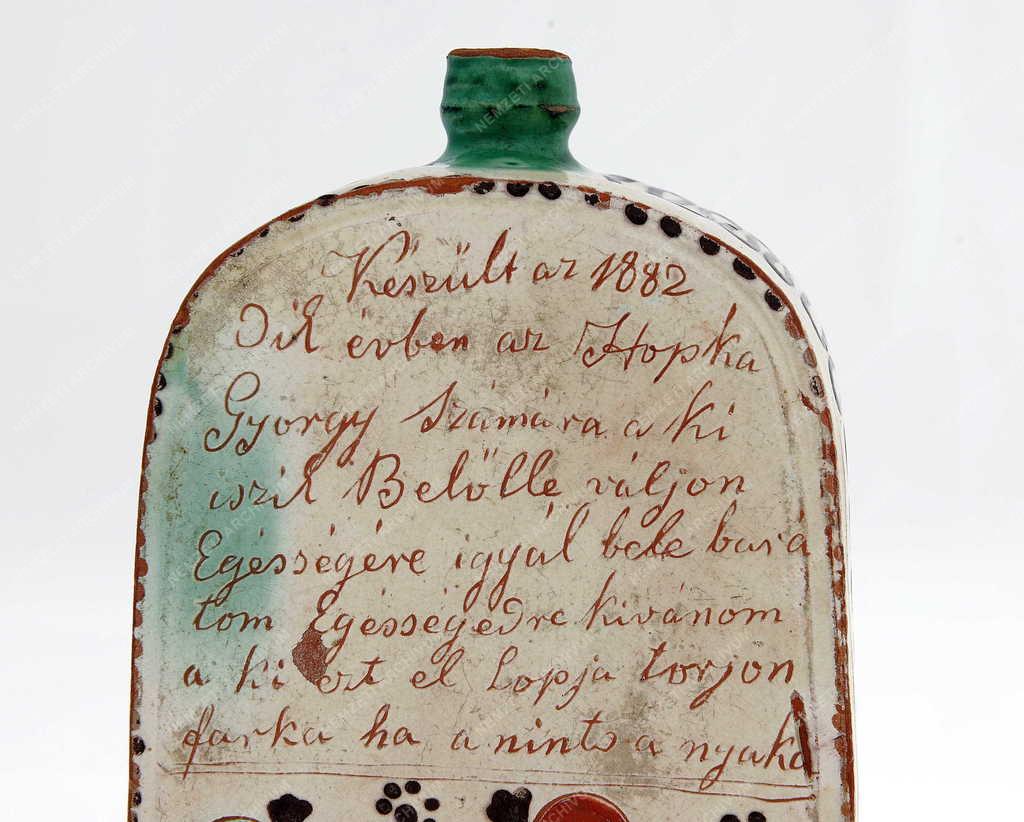 Készűlt az 1882
Dik évben az Hopka
György számára a ki
iszik Belőlle váljon
Egésségére igyál bele bará
tom Egésségedre kívánom
a ki ezt el Lopja törjön
farka ha a nints a nyaka
NEMZETI ARCHÍVUM